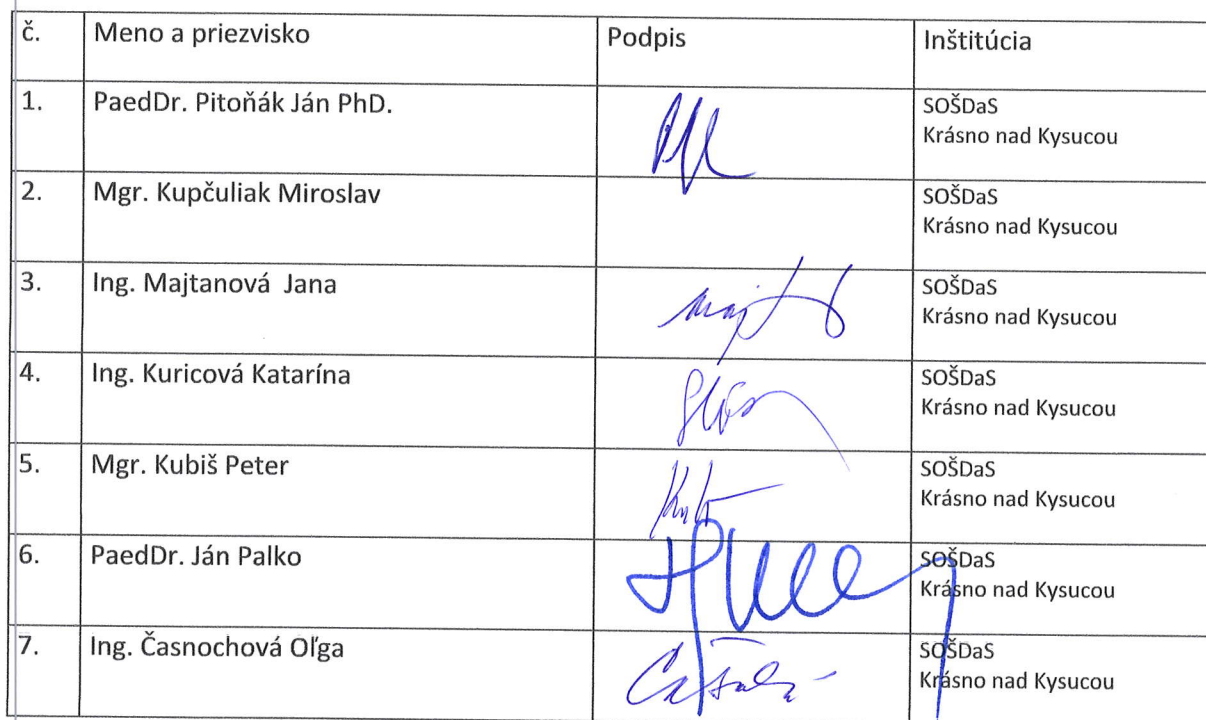 č. Meno a priezvisko Podpis Inštitúcia
1. PaedDr. Pitoňák Ján PhD. SOŠDaS
Krásno nad Kysucou
2. Mgr. Kupčuliak Miroslav SOŠDaS
Krásno nad Kysucou
3. Ing. Majtanová Jana SOŠDaS
Krásno nad Kysucou
4. Ing. Kuricová Katarína SOŠDaS
Krásno nad Kysucou
5. Mgr. Kubiš Peter SOŠDaS
Krásno nad Kysucou
6. PaedDr. Ján Palko SOŠDaS
Krásno nad Kysucou
7. Ing. Časnochová Oľga SOŠDaS
Krásno nad Kysucou